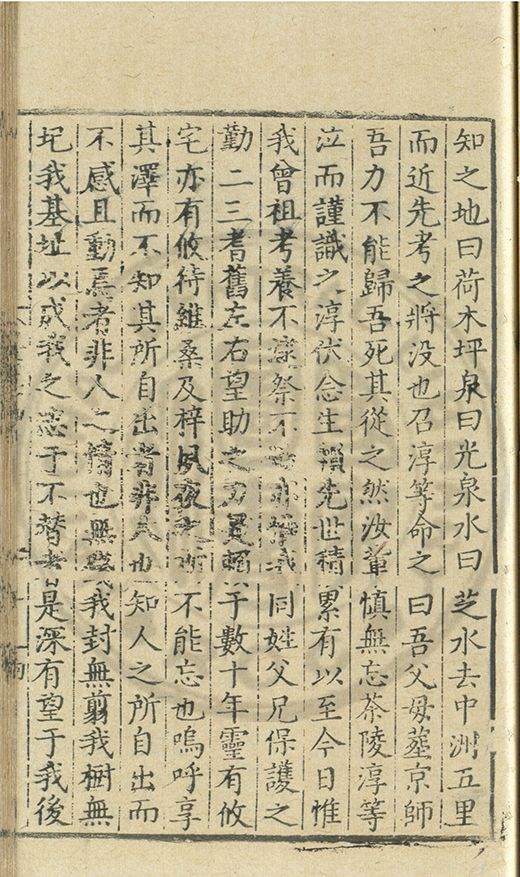 知之地曰荷木坪泉曰光泉水曰芝水去中洲五里
而近先考之將没也召淳等命之曰吾父母塟京師
吾力不能歸吾死其從之然汝軰慎無忘茶陵淳等
泣而謹識之淳伏念生先世積累有以至今日惟
我曾祖考養不逮祭不同姓父兄保護之
勤二三耆舊左右望助之力賴于數十年靈有攸
宅亦有攸待維桑及梓夙夜之所不能忘也嗚呼享
其澤而不知其所自出者非人也知人之所自出而
不感且動焉者非人之情也無我封無翦我樹無
圮我基址以成我之志于不替者是深有望于我後